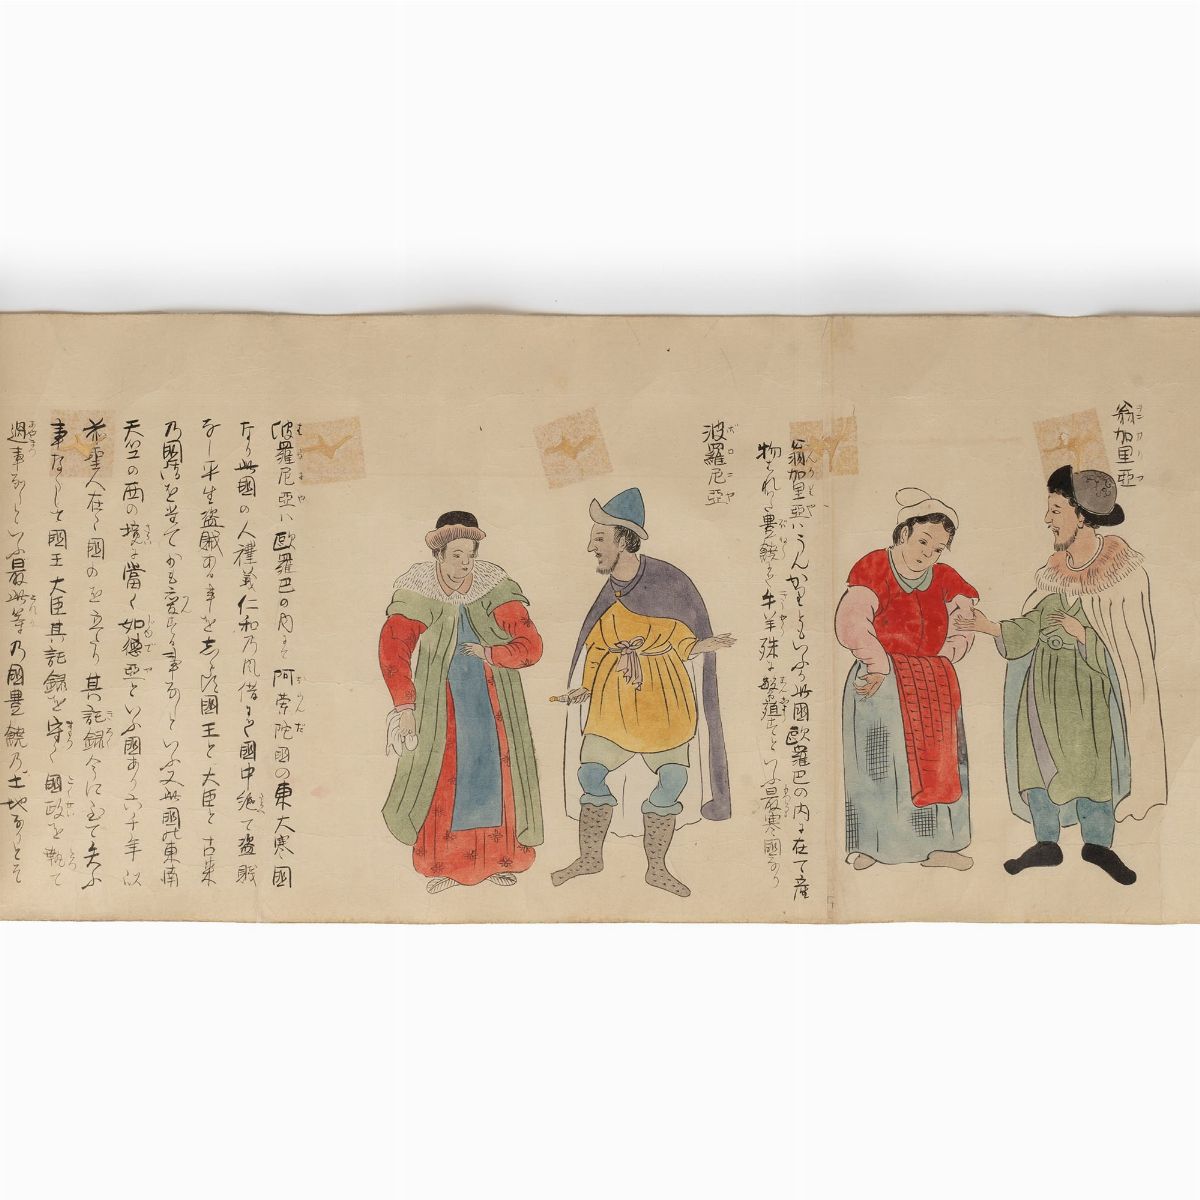 翁加里亞
ヲンカリヤ
翁加里亞ハうんかりもといふ此國歐羅巴の内に在て産
物もれ豊饒にして牛羊殊に繁殖すといふ最寒國なり
波羅尼亞
ボロニヤ
波羅尼亞ハ歐羅巴の内にて阿蘭陀國の東大寒國
なり此國の人禮義仁和乃風俗にて國中絶て盗賊
なし平生盗賊ある事を志らす國王と大臣と古来
乃國法を当てかも変する事なしといふ又此國北東南
天竺の西の境に當て如德亞といふ國あり六千年以
前聖人在て國の を立てり其記録今に至て失ふ
事なしと國王大臣其記録を守て國政を執て
過事なしといふ最此等乃國豊饒乃土地なりとそ